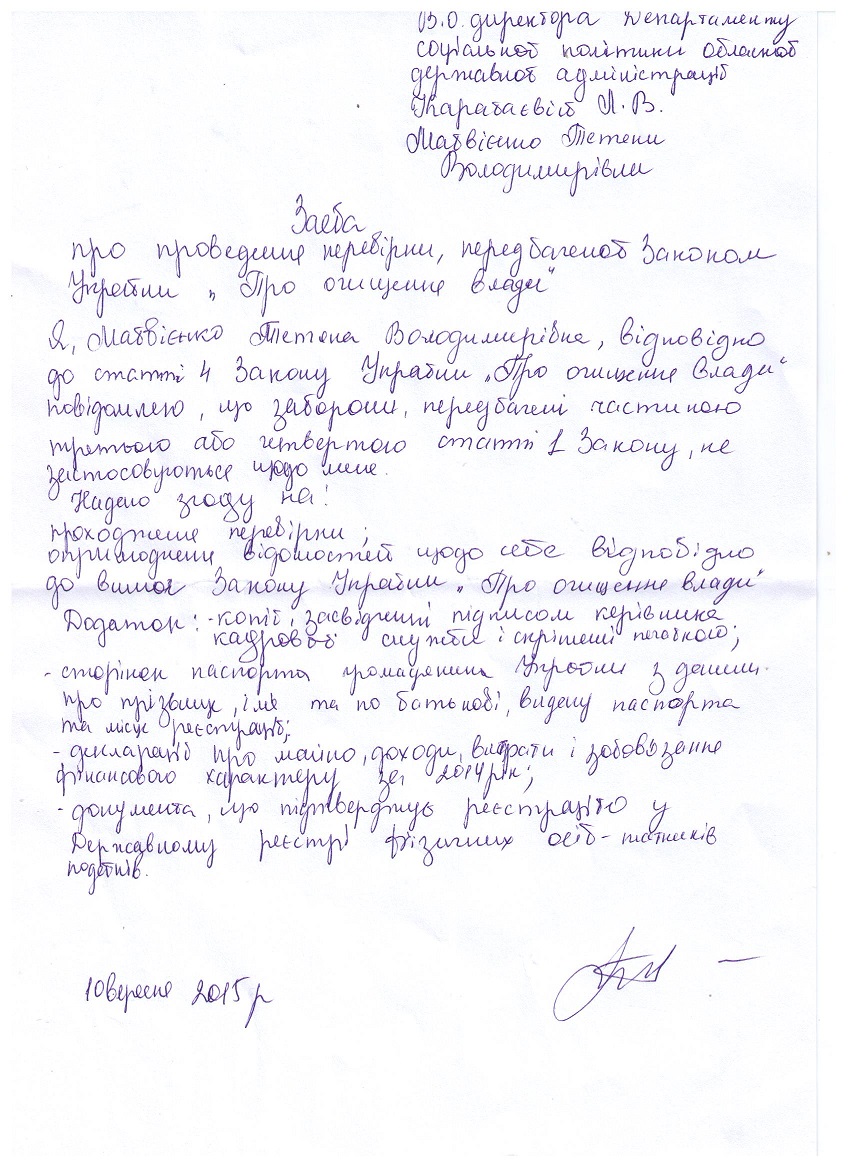 В.О. директора Департаменту
соціальної політики обласної
державної адміністрації
Каратаєвій Л.В.
Матвієнко Тетяни
Володимирівни
Заява
про проведення перевірки, передбаченої Законом
України „Про очищення влади"
Я, Матвієнко Тетяна Володимирівна, відповідно
до статті 4 Закону України „Про очищення влади"
повідомляю, що заборони, передбачені частиною
третьою або четвертою статті 1 Закону, не
застосовуються щодо мене.
Надаю згоду на:
проходження перевірки;
оприлюднення відомостей щодо себе відповідно
до вимог Закону України „Про очищення влади"
Додаток: - копії, засвідчені підписом керівника
кадрової служби і скріплені печаткою;
- сторінок паспорта громадянина України з даними
про прізвище, ім'я та по батькові, видачу паспорта
та місце реєстрації;
- декларації про майно, доходи, витрати і зобов'язання
фінансового характеру за 2014 рік;
- документа, що підтверджує реєстрацію у
Державному реєстрі фізичних осіб - платників
податків.
10 вересня 2015 р